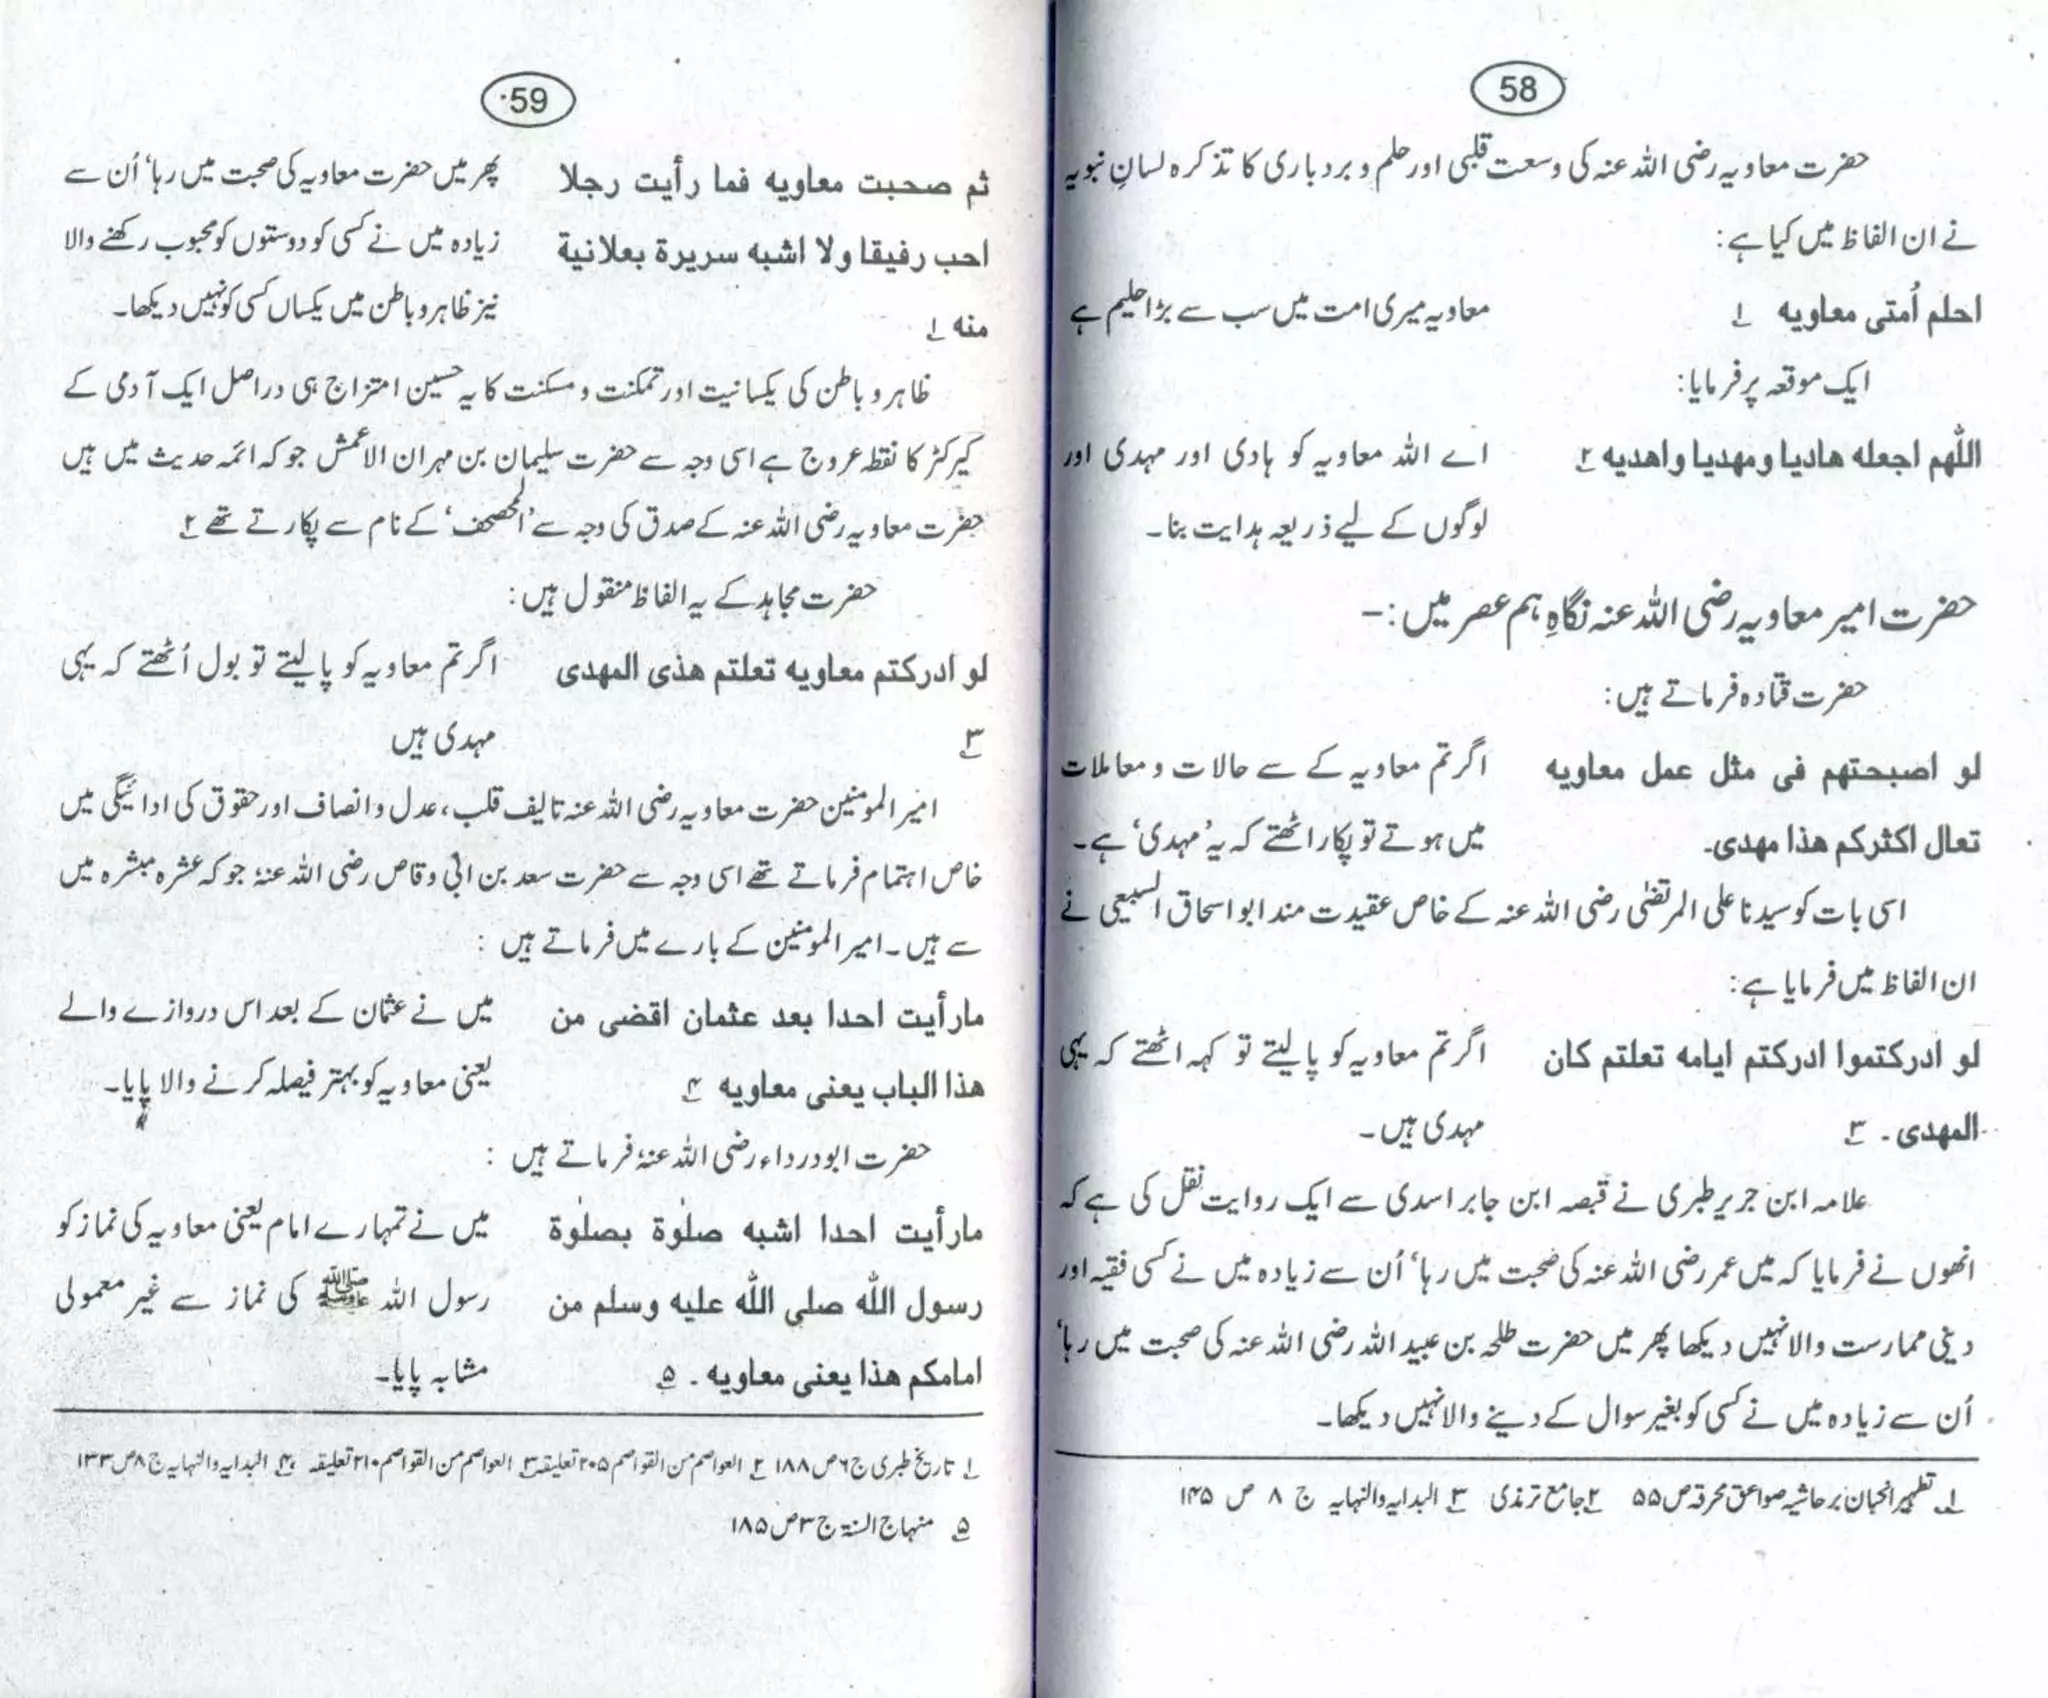 58
حضرت معاویہ رضی اللہ عنہ کی وسعت قلبی اور حلم و بردباری کا تذکرہ لسانِ نبویہ
نے ان الفاظ میں کیا ہے:
احلم اُمتی معاویه ۱ معاویہ میری امت میں سب سے بڑا حلیم ہے
ایک موقعہ پر فرمایا:
اللهم اجعله هاديا ومهديا واهديه ۲ اے اللہ معاویہ کو ہادی اور مہدی اور
لوگوں کے لیے ذریعہ ہدایت بنا۔
حضرت امیر معاویہ رضی اللہ عنہ نگاہِ ہم عصر میں:-
حضرت قتادہ فرماتے ہیں:
لو اصبحتهم فی مثل عمل معاویه اگر تم معاویہ کے سے حالات و معاملات
تعال اکثرکم هذا مهدی۔ میں ہوتے تو پکار اٹھتے کہ یہ ’مہدی‘ ہے۔
اسی بات کو سیدنا علی المرتضیٰ رضی اللہ عنہ کے خاص عقیدت مند ابو اسحاق السبیعی نے
ان الفاظ میں فرمایا ہے:
لو ادرکتموا ادرکتم ایامه تعلتم کان اگر تم معاویہ کو پا لیتے تو کہہ اٹھتے کہ یہی
المهدی۔ ۳ مہدی ہیں۔
علامہ ابن جریر طبری نے قبصہ ابن جابر اسدی سے ایک روایت نقل کی ہے کہ
انھوں نے فرمایا کہ میں عمر رضی اللہ عنہ کی صحبت میں رہا‘ اُن سے زیادہ میں نے کسی فقیہ اور
دینی ممارست والا نہیں دیکھا پھر میں حضرت طلحہ بن عبید اللہ رضی اللہ عنہ کی صحبت میں رہا‘
اُن سے زیادہ میں نے کسی کو بغیر سوال کے دینے والا نہیں دیکھا۔
۱۔ تطہیر الجنان بر حاشیہ صواعق محرقہ ص ۵۵ ۲ جامع ترمذی ۳ البدایہ والنہایہ ج ۸ ص ۱۴۵
59
ثم صحبت معاویه فما رأیت رجلا پھر میں حضرت معاویہ کی صحبت میں رہا‘ اُن سے
احب رفیقا ولا اشبه سریرة بعلانیة زیادہ میں نے کسی کو دوستوں کو محبوب رکھنے والا
منه ۱ نیز ظاہر و باطن میں یکساں کسی کو نہیں دیکھا۔
ظاہر و باطن کی یکسانیت اور تمکنت و مسکنت کا یہ حسین امتزاج ہی دراصل ایک آدمی کے
کیرکٹر کا نقطہ عروج ہے اسی وجہ سے حضرت سلیمان بن مہران الاعمش جو کہ ائمہ حدیث میں ہیں
حضرت معاویہ رضی اللہ عنہ کے صدق کی وجہ سے ’المصحف‘ کے نام سے پکارتے تھے ۲
حضرت مجاہد کے یہ الفاظ منقول ہیں:
لو ادرکتم معاویه تعلتم هذی المهدی اگر تم معاویہ کو پا لیتے تو بول اُٹھتے کہ یہی
۳ مہدی ہیں
امیر المومنین حضرت معاویہ رضی اللہ عنہ تالیف قلب، عدل و انصاف اور حقوق کی ادائیگی میں
خاص اہتمام فرماتے تھے اسی وجہ سے حضرت سعد بن ابی وقاص رضی اللہ عنہٗ جو کہ عشرہ مبشرہ میں
سے ہیں۔ امیر المومنین کے بارے میں فرماتے ہیں :
مارأیت احدا بعد عثمان اقضی من میں نے عثمان کے بعد اس دروازے والے
هذا الباب یعنی معاویه ۴ یعنی معاویہ کو بہتر فیصلہ کرنے والا پایا۔
حضرت ابودرداء رضی اللہ عنہٗ فرماتے ہیں :
مارأیت احدا اشبه صلوٰة بصلوٰة میں نے تمہارے امام یعنی معاویہ کی نماز کو
رسول الله صلی الله علیه وسلم من رسول اللہ ﷺ کی نماز سے غیر معمولی
امامکم هذا یعنی معاویه۔ ۵ مشابہ پایا۔
۱ تاریخ طبری ج ۶ ص ۱۸۸ ۲ العواصم من القواصم ۲۰۵ تعلیقہ ۳ العواصم من القواصم ۲۱۰ تعلیقہ ۴ البدایہ والنہایہ ج ۸ ص ۱۳۳
۵ منہاج السنۃ ج ۳ ص ۱۸۵